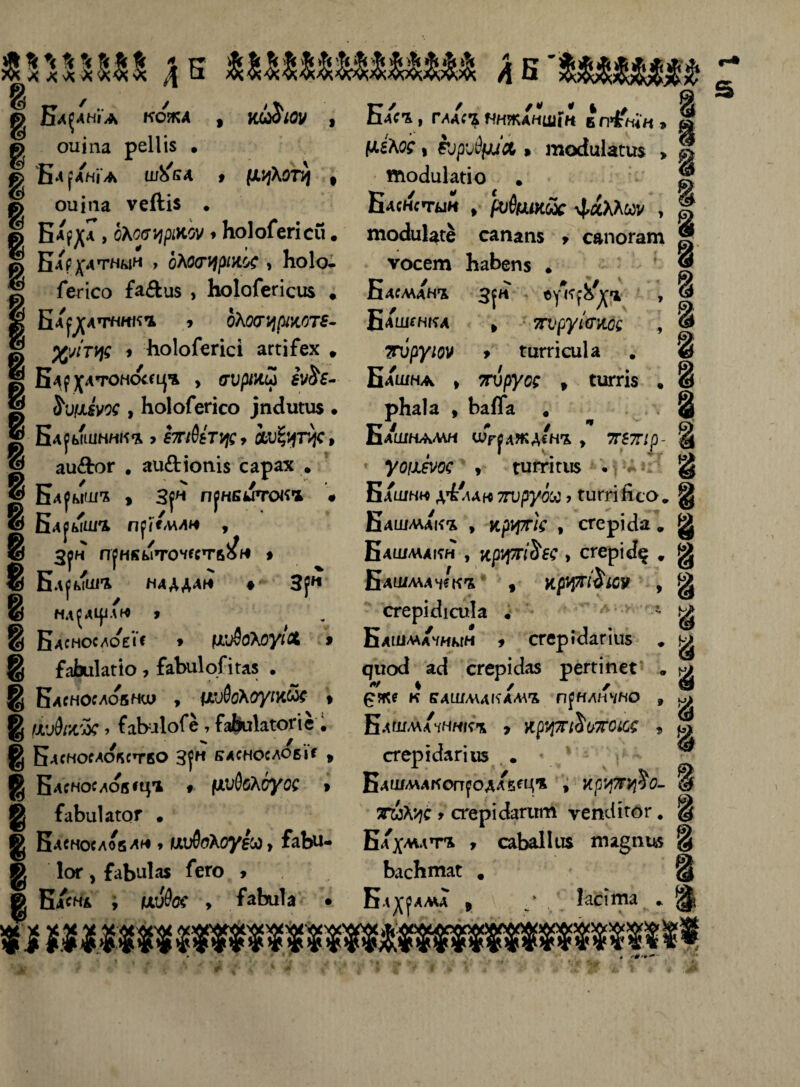 АБ
Бара́нїѧ ко́жа , κώδιον ,
ouina pellis .
Бара́нїѧ шꙋ́ба , μηλοτὴ ,
ouina veſtis .
Барха̀ , ὁλοσηρικὸν , holofericũ .
Ба́рхатный , ὁλοσηρικὸς , holo-
ferico factus , holofericus .
Ба́рхатникъ , ὁλοσηρικοτε-
χνίτης , holoferici artifex .
Бархатоно́сецъ , συρικῷ ἐνδε-
δυμένος , holoferico jndutus .
Бары́шникъ , ἐπιθέτης , αὐξητὴς ,
auctor . auctionis capax .
Бары́шъ , Зри̑ прибы́токъ .
Бары́шъ прїе́млю ,
зри̑ прибы́точествꙋю ,
Бары́шъ наддаю̀ . Зри̑
нараща́ю ,
Баснословїе , μυθολογία ,
fabulatio , fabulofitas .
Баснословнѡ , μυθολογικῶς ,
μυθικῶς , fabulofè , fabulatoriè .
Баснословство зри̑ баснословїе ,
Баснословецъ , μυθολόγος ,
fabulator .
Баснословлю , μυθολογέω , fabu-
lor , fabulas fero ,
Ба́снь , μύθος , fabula .
АБ
Ба́съ , гла́съ нижа́йшїй в пѣ́нїи ,
μέλος , εὐρυθμία , modulatus ,
modulatio .
Баси́стый , ῥυθμικῶς ψάλλων ,
modulatè canans , canoram
vocem habens .
Басма́нъ зри̑ ꙋкрꙋ́хъ ,
Ба́шенка , πυργίσκος ,
πύργιον , turricula .
Ба́шнѧ , πύργος , turris .
phala , baſſa .
Ба́шнѧми ѡгражде́нъ , πεπυρ-
γομένος , turritus .
Ба́шню дѣ́лаю πυργόω , turrifico .
Башма́къ , κρηπὶς , crepida .
Башмаки̑ , κρηπίδες , crepidę .
Башмаче́къ , κρηπίδιον ,
crepidicula .
Башма́чный , crepidarius .
quod ad crepidas pertinet .
е́же к башмака́мъ прили́чно ,
Башма́чникъ , κρηπιδοποιὸς ,
crepidarius .
Башмакопрода́вецъ , κρηπηδο-
πώλης , crepidarum venditor .
Ба́хматъ , caballus magnus
bachmat .
Бахрама̀ , lacima .